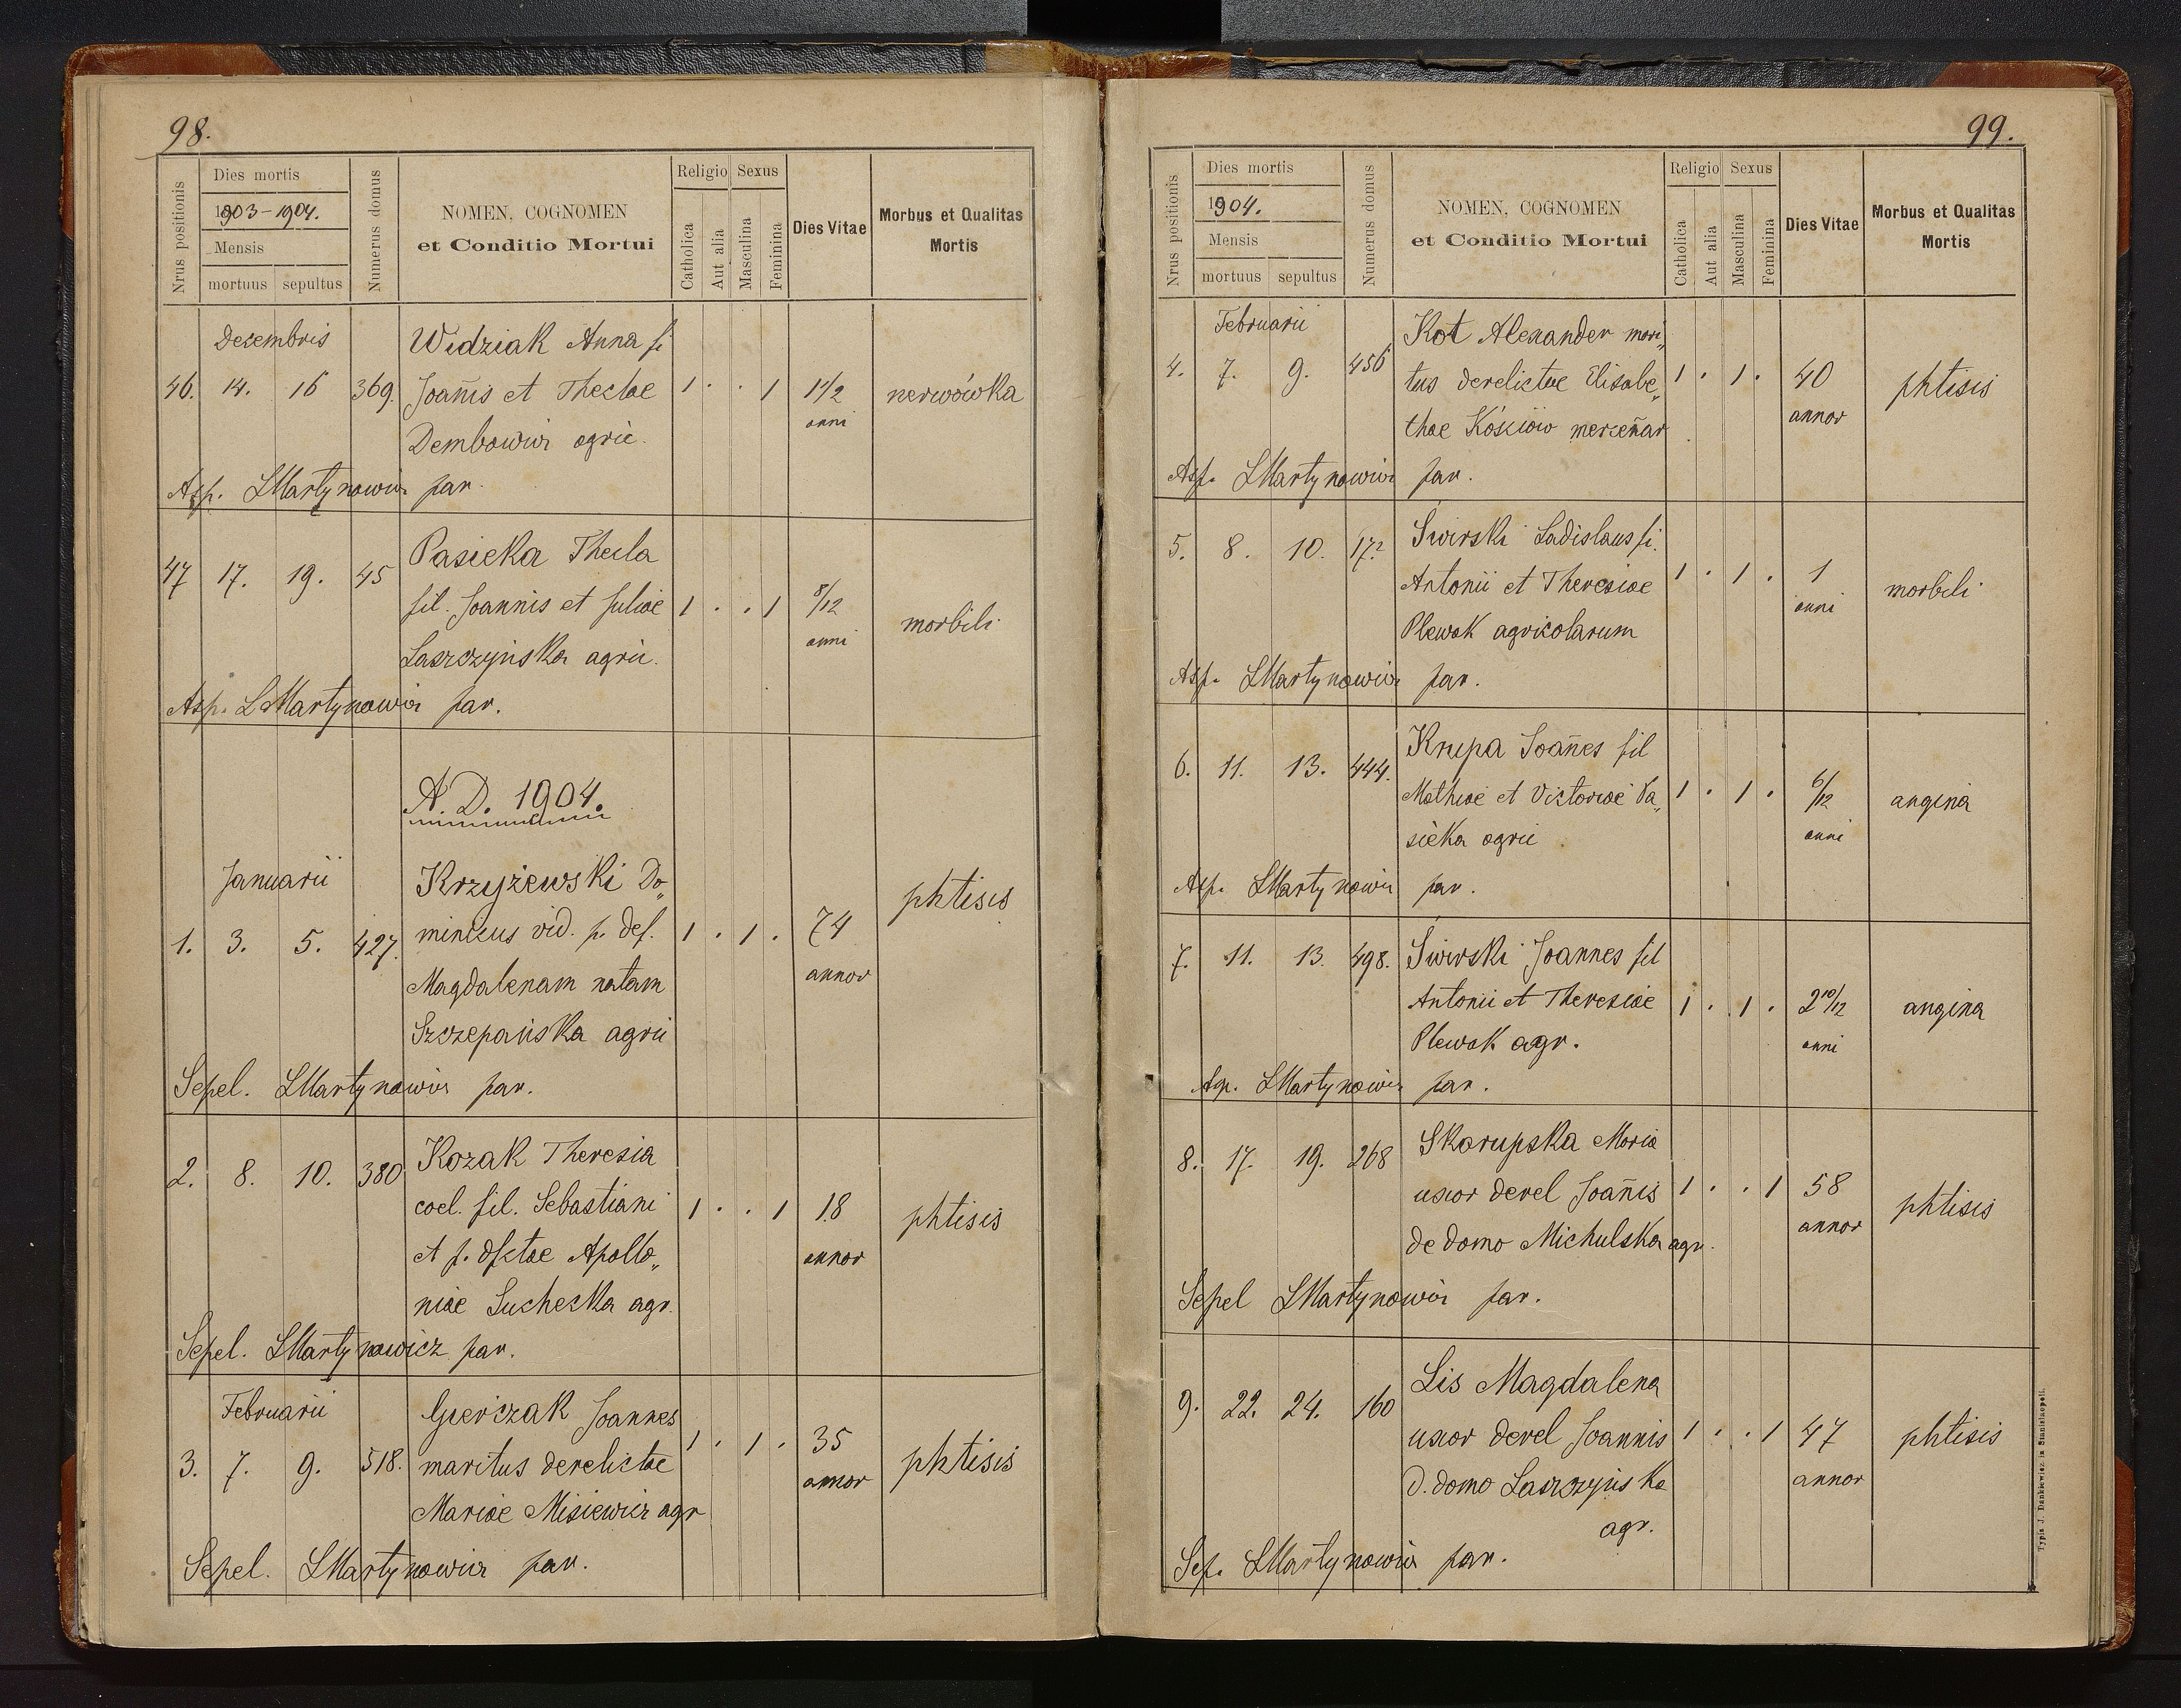 98.
Nrus positionis
Dies mortis
1903-1904.
Mensis
mortuus sepultus
Numerus domus
NOMEN, COGNOMEN
et Conditio Mortui
Religio Sexus
Catholica
Aut alia
Masculina
Feminina
Dies Vitae
Morbus et Qualitas
Mortis
Decembris
Widziak Anna fi
46. 14. 16 369. Joañis et Theclae 1 . . 1 1 1/2 nerwówka
anni
Dembowicz agric.
Asp. LMartynowicz par.
Pasieka Thecla
47 17. 19. 45
fil. Joannis et Juliae 1 . . 1 8/12 morbili
anni
Laszczyńska agric.
Asp. LMartynowicz par.
A. D. 1904.
Januarii Krzyżewski Do„
phtisis
1. 3. 5. 427. minicus vid. p. def. 1 . 1 . 74
Magdalenam natam annor
Szczepańska agric
Sepel. LMartynowicz par.
2. 8. 10. 380 Kozak Theresia
coel. fil. Sebastiani 1 . . 1 18 phtisis
et p. dfctae Apollo„ annor
niae Suchecka agr.
Sepel. LMartynowicz par.
Februarii Gierczak Joannes
3. 7. 9. 518. maritus derelictae 1 . 1 . 35 phtisis
annor
Mariae Misiewicz agr
Sepel. LMartynowicz par.
99.
Nrus positionis
Dies mortis
1904.
Mensis
mortuus sepultus
Numerus domus
NOMEN, COGNOMEN
et Conditio Mortui
Religio Sexus
Catholica
Aut alia
Masculina
Feminina
Dies Vitae
Morbus et Qualitas
Mortis
Februarii
Kot Alexander mari„
4. 7. 9. 456 tus derelictae Elisabe„ 1 . 1 . 40 phtisis
annor
thae Kościów merceñar
Asp. LMartynowicz par.
5. 8. 10. 172 Świrski Ladislaus fi.
Antonii et Theresiae 1 . 1 . 1 morbili
anni
Plewak agricolarum
Asp. LMartynowicz par.
Krupa Joañes fil
6. 11. 13. 444.
Mathiae et Victoriae Pa„ 1 . 1 . 6/12 angina
anni
sieka agric
Asp. LMartynowicz par.
7. 11. 13. 498. Świrski Joannes fil
Antonii et Theresiae 1 . 1 . 2 10/12 angina
anni
Plewak agr.
Asp. LMartynowicz par.
8. 17. 19. 268 Skarupska Maria
uxor derel Joañis 1 . . 1 58 phtisis
annor
de domo Michulska agr.
Sepel LMartynowicz par.
Lis Magdalena
9. 22. 24. 160
uxor derel Joannis 1 . . 1 47 phtisis
annor
d. domo Laszczyńska
agr.
Sep. LMartynowicz par.
Typis J. Dankiewicz in Stanislaopoli.